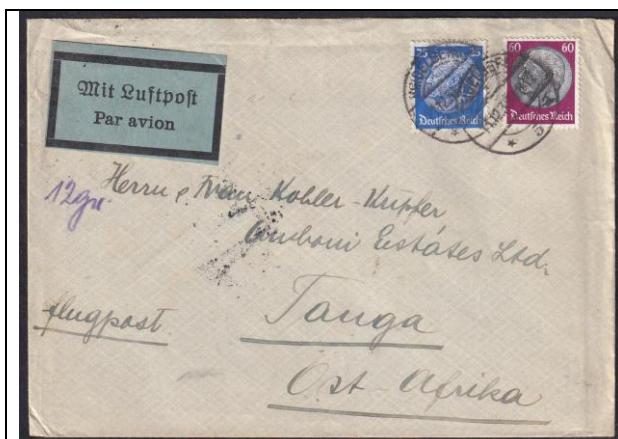 Mit Luftpost
Par avion
25
Deutsches Reich
60 60
Deutsches Reich
12gr.
Herrn & Frau Kohler-Kupfer
Amboni Estátes Ltd.
flugpost
Tanga
Ost-Afrika